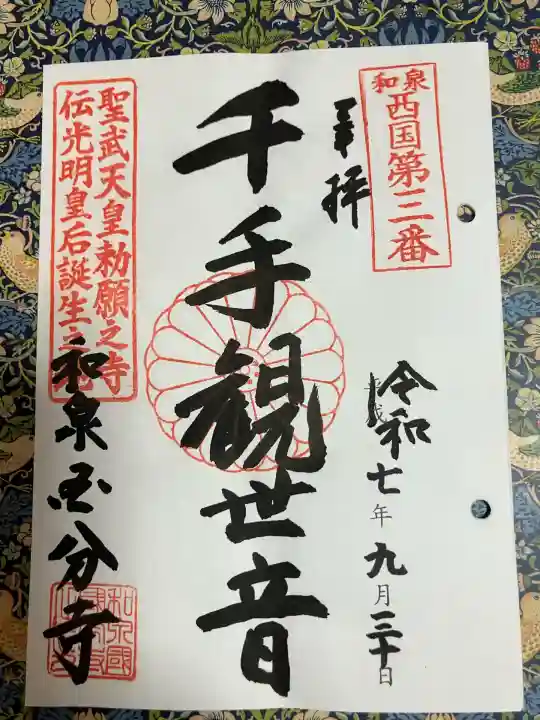 和泉
西国第三番
奉拝
令和七年九月三十日
千手観世音
聖武天皇勅願之寺
伝光明皇后誕生之
和泉国分寺